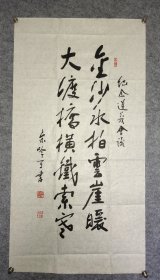 紀念遵義會議
金沙水拍雲崖暖
大渡橋橫鐵索寒